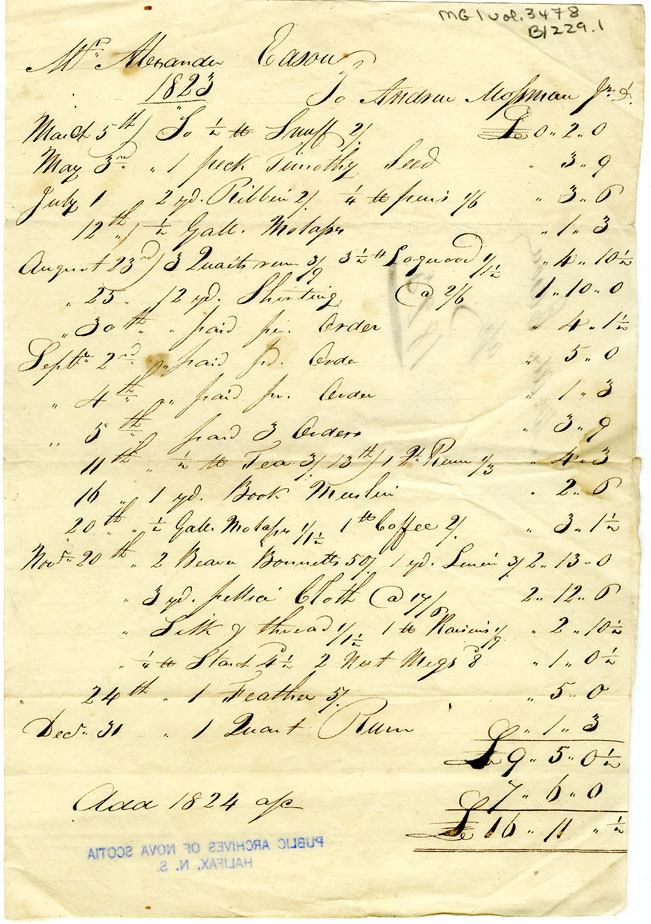 MG 1 vol. 3478
B/229.1
Mr Alexander Eason
1823 To Andrew Mosman Jr Dr.
March 5th / To ½ lb Snuff 2/. £0 " 2 " 0
May 3rd " 1 peck Timothy Seed " 3 " 9
July 1 2 yd. Ribbin 2/ ¼ lb pins 1/6 " 3 " 6
12th / ½ Gall. Molass " 1 " 3
August 23rd / 3 Quarts rum 3/9 3½ lb Logwood 1/1½ " 4 " 10½
" 25 . 12 yd. Shirting @ 2/6 1 " 10 " 0
" 30th " paid pr. Order " 4 " 1½
Septr 2nd " paid pr. Order " 5 " 0
" 4th " paid pr. Order " 1 " 3
" 5th paid 3 Orders " 3 " 9
11th " ½ lb Tea 3/ 13th / 1 qt. Rum 1/3 " 4 " 3
16 " 1 yd. Book Muslin " 2 " 6
20th " ½ Gall. Molass 1/1½ 1 lb Coffee 2/. " 3 " 1½
Novr 20th " 2 Beaver Bonnetts 50/ 1 yd. Linein 3/ 2 " 13 " 0
" 3 yd. pellice Cloth @ 17/6 2 " 12 " 6
" Silk & thread 1/1½ 1 lb Raisins 1/9 " 2 " 10½
" ¼ lb Starch 4½ 2 Nut Megs 8 " 1 " 0½
24th " 1 Feather 5/. " 5 " 0
Decr 31 " 1 Quart Rum " 1 " 3
£9 " 5 " 0½
Add 1824 a/c 7 " 6 " 0
£16 " 11 " ½
PUBLIC ARCHIVES OF NOVA SCOTIA
HALIFAX, N. S.